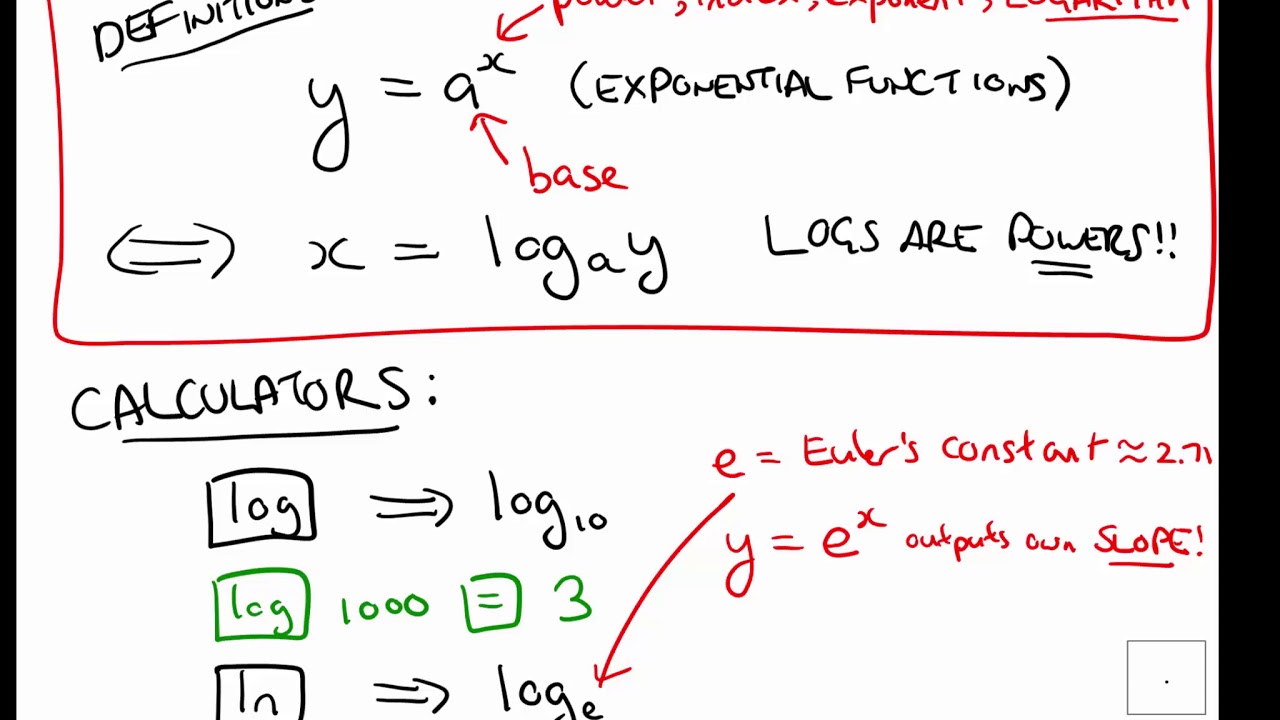 power, index, exponent, LOGARITHM
DEFINITION
y = aˣ (EXPONENTIAL FUNCTIONS)
base
⟺ x = logₐy LOGS ARE POWERS!!
CALCULATORS:
e = Euler's constant ≈ 2.71
log ⟹ log₁₀
y = eˣ outputs own SLOPE!
log 1000 = 3
ln ⟹ logₑ